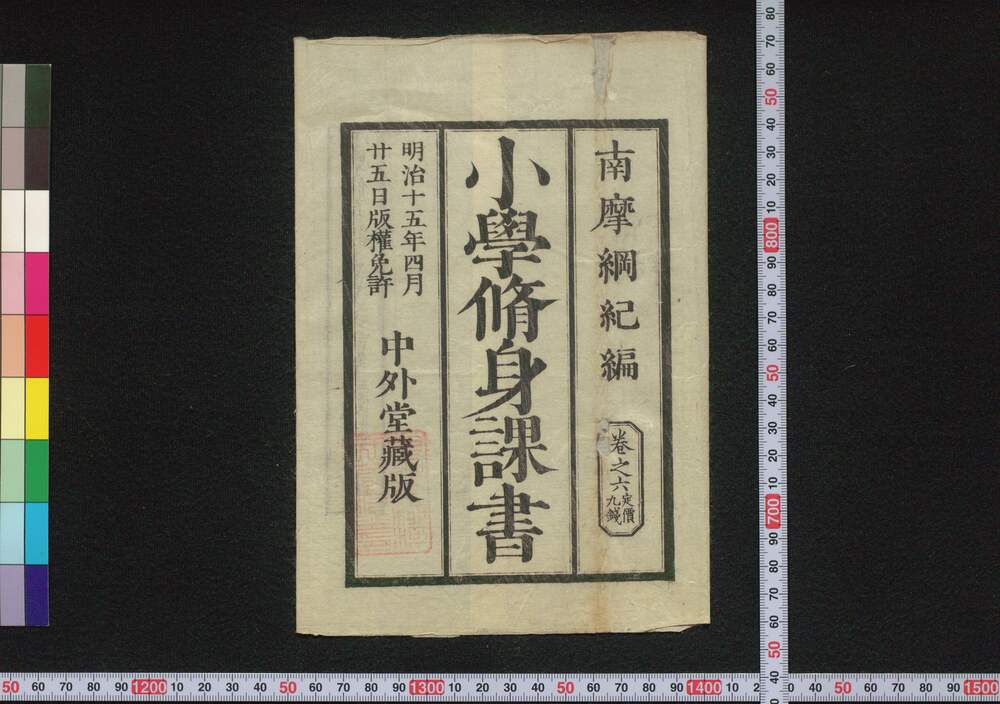 南摩綱紀編
卷之六
定價
九錢
小學脩身課書
明治十五年四月
廿五日版權免許
中外堂藏版
80
70
60
50
40
30
20
10
800
90
80
70
60
50
40
30
20
10
700
90
80
70
60
50
40
50 60 70 80 90 1200 10 20 30 40 50 60 70 80 90 1300 10 20 30 40 50 60 70 80 90 1400 10 2 30 40 50 60 70 80 90 1500